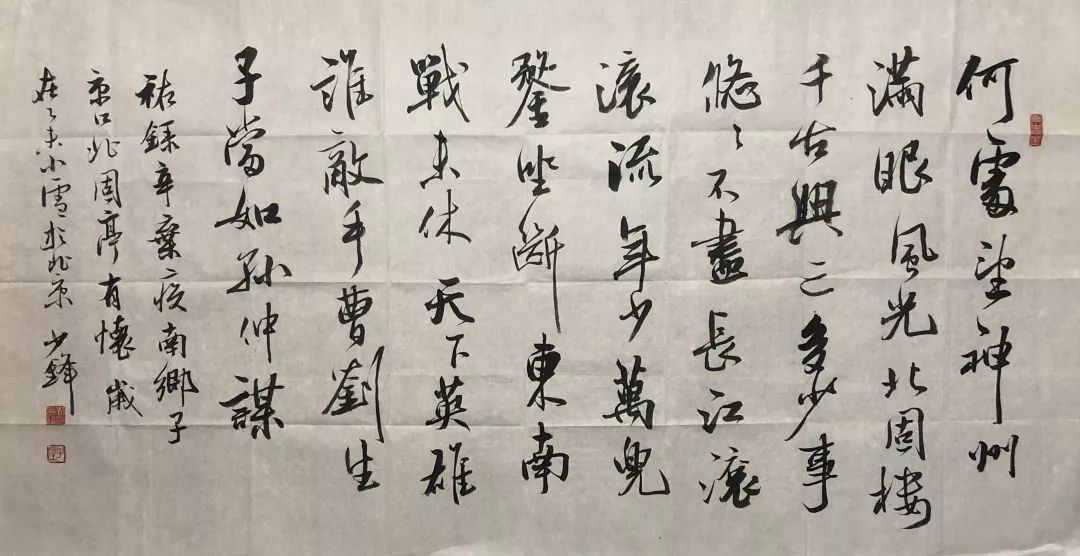 何處望神州
滿眼風光北固樓
千古興亡多少事
悠〻不盡長江滾
滾流年少萬兜
鍪坐斷東南
戰未休天下英雄
誰敵手曹劉生
子當如孫仲謀
祐錄辛棄疾南鄉子
京口北固亭有懷歲
在乙未小雪於北京 少鋒